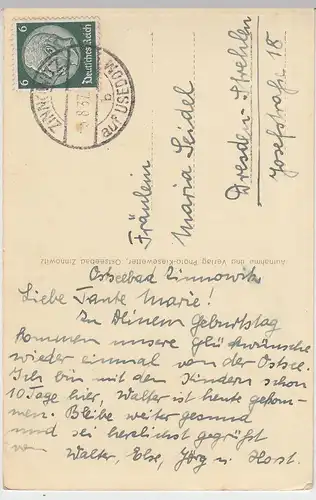 6 Deutsches Reich 6
ZINNOWITZ
8.37
b
auf USEDOM
Fräulein
Maria Seidel
Dresden-Strehlen
Josefstraße 18
Aufnahme und Verlag Photo-Kiesewetter, Ostseebad Zinnowitz
Ostseebad Zinnowitz
Liebe Tante Marie!
Zu Deinem Geburtstag
kommen unsere Glückwünsche
wieder einmal von der Ostsee.
Ich bin mit den Kindern schon
10 Tage hier, Walter ist heute gekom-
men. Bleibe weiter gesund
und sei herzlichst gegrüßt
von Walter, Else, Jörg u. Horst.